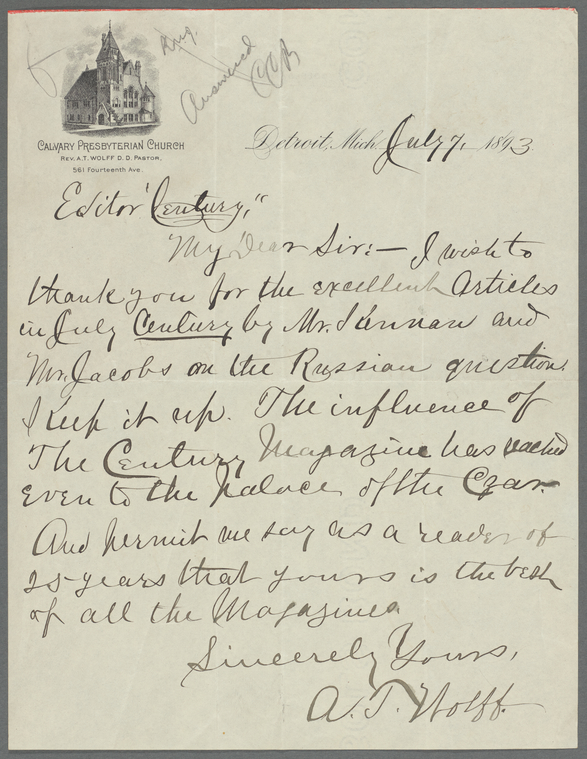 Aug.
Answered
CCB
CALVARY PRESBYTERIAN CHURCH
REV. A.T. WOLFF D.D. PASTOR,
561 Fourteenth Ave.
Detroit, Mich. July 7, 1893.
Editor "Century,"
My Dear Sir:— I wish to
thank you for the excellent Articles
in July Century by Mr. Kennan and
Mr. Jacobs on the Russian question.
Keep it up. The influence of
The Century Magazine has reached
even to the palace of the Czar.
And permit me say as a reader of
25 years that yours is the best
of all the Magazines.
Sincerely Yours,
A. T. Wolff.